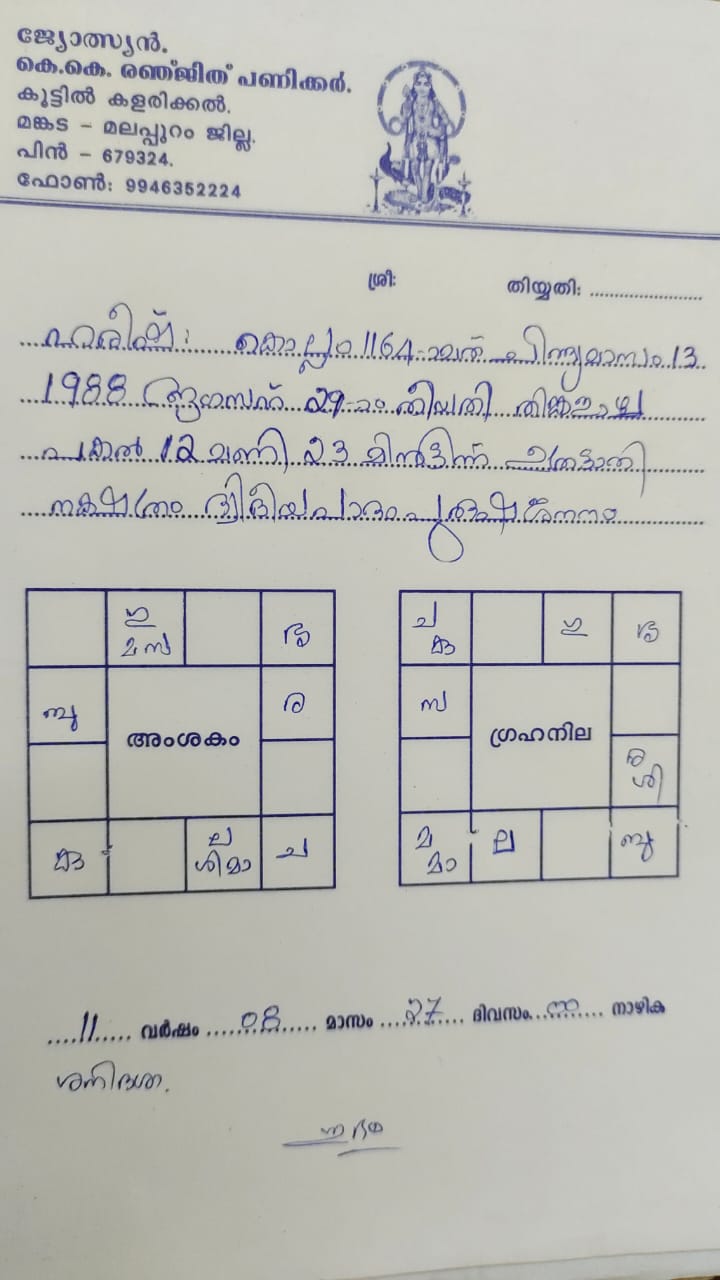 ജ്യോത്സ്യൻ.
കെ.കെ. രഞ്ജിത് പണിക്കർ.
കൂട്ടിൽ കളരിക്കൽ.
മങ്കട – മലപ്പുറം ജില്ല.
പിൻ – 679324.
ഫോൺ: 9946352224
ശ്രീഃ തിയ്യതി: ......................
ഹരീഷ്: കൊല്ലം 1164-ാമത് ചിങ്ങമാസം 13
1988 ആഗസ്ത് 29-ാം തീയതി തിങ്കളാഴ്ച
പകൽ 12 മണി 23 മിനുട്ടിന് ഉത്രട്ടാതി
നക്ഷത്രം ദ്വിതീയപാദം പുരുഷജനനം
ഗു
മ സ
ര
ബു
അംശകം
കു
ല
ശി മാ
ച
ച
കു
ഗു
സ
ഗ്രഹനില
ര
ശി
മ
മാ
ല
ബു
....11..... വർഷം ....08.... മാസം ....27.... ദിവസം.......... നാഴിക
ശനിദശ.